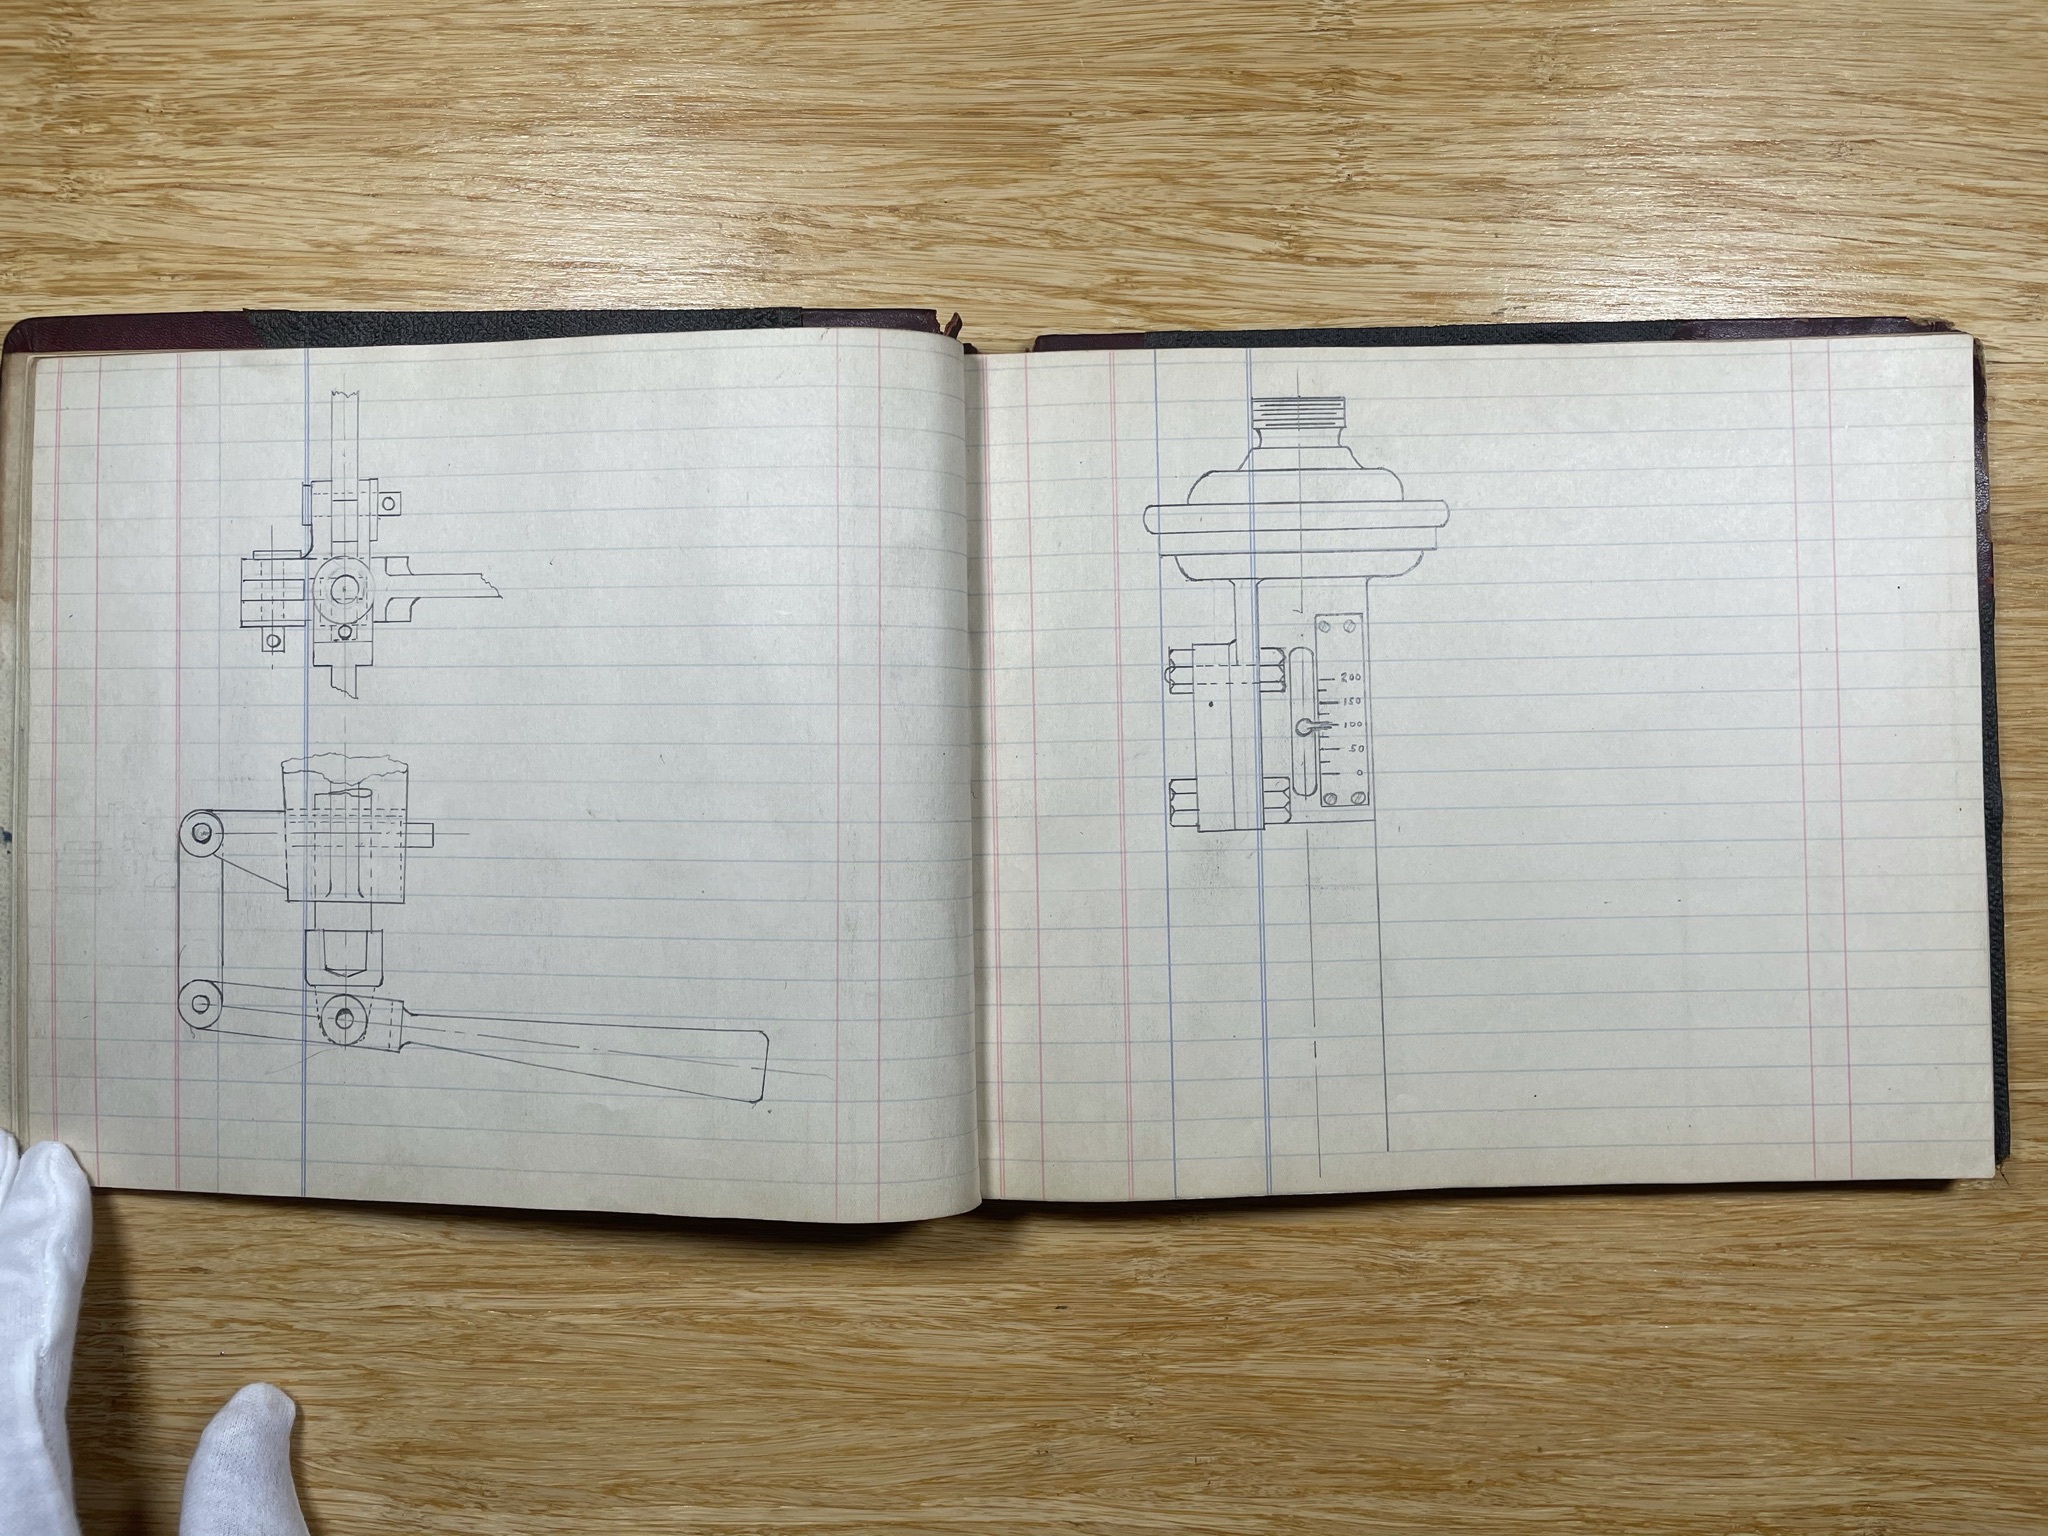 200
150
100
50
0